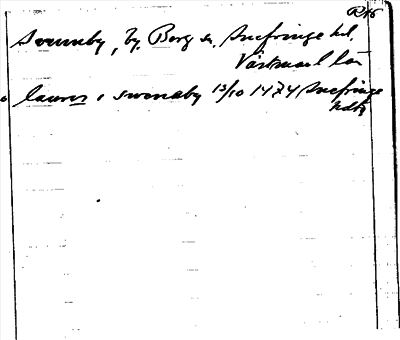 Svennby, by, Berg sn, Snefringe hd,
Västmanl län
laurens i swenaby 13/10 1474 Snefringe
hdbr